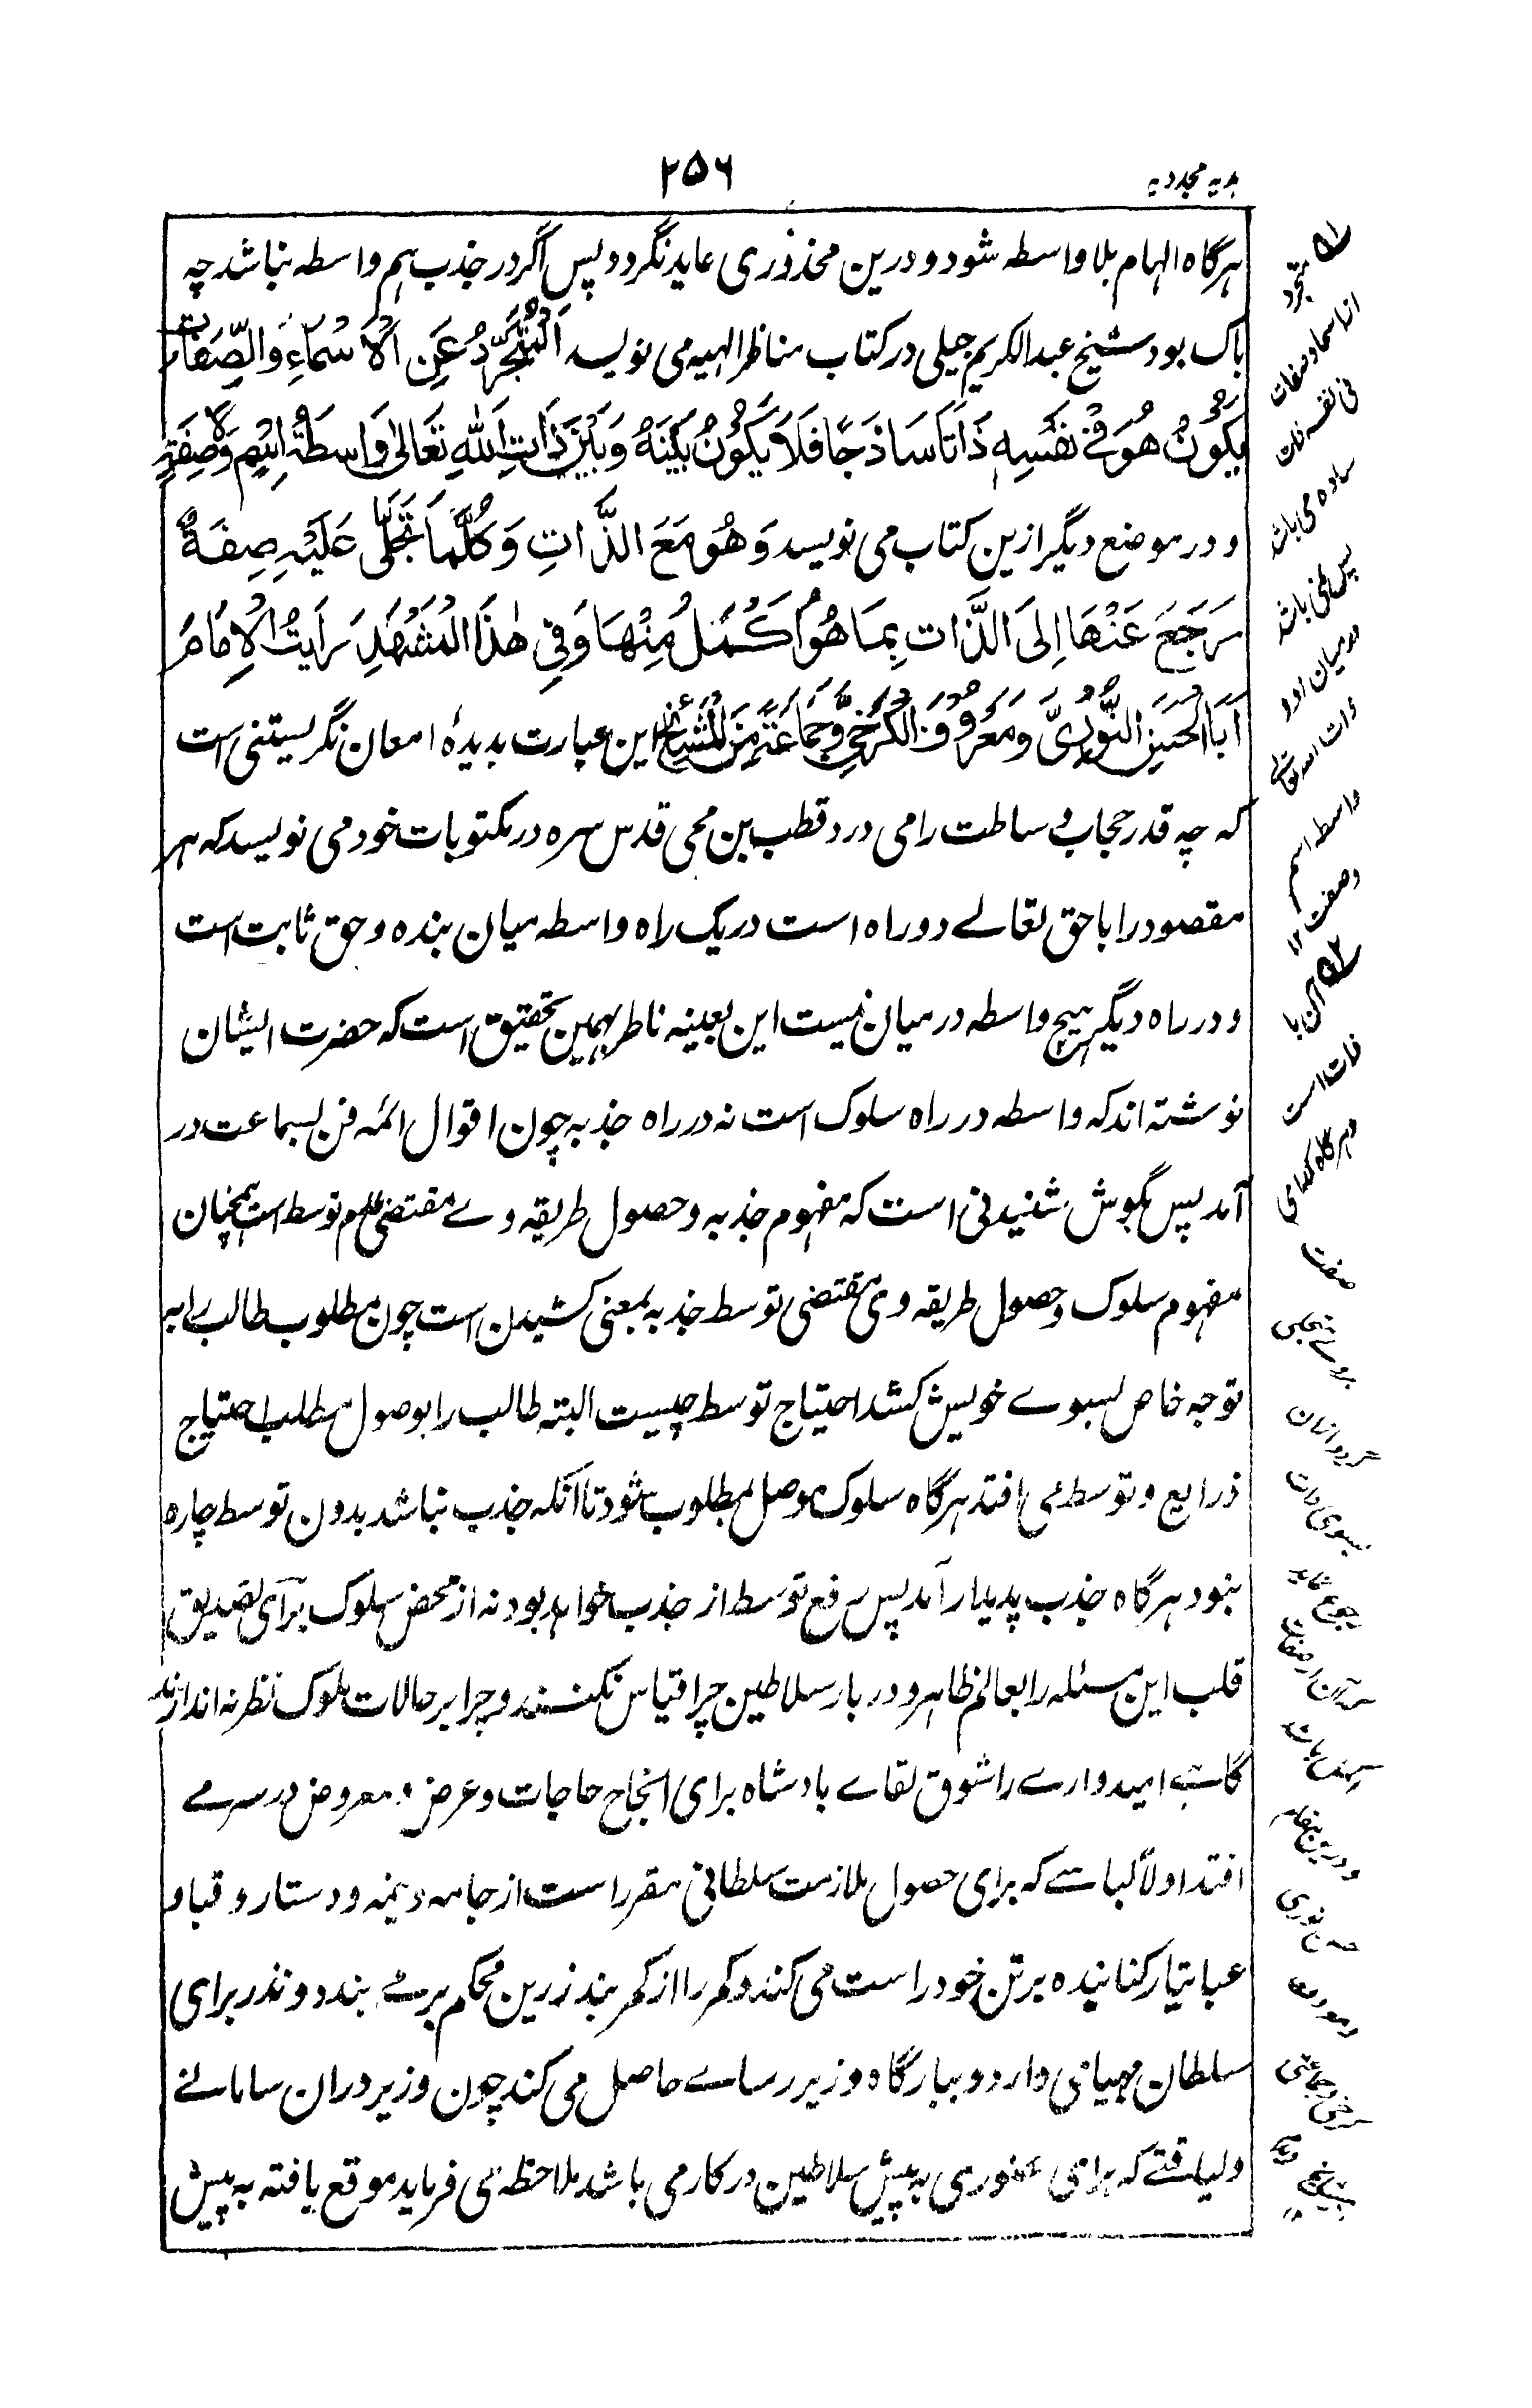 هدیه مجددیه
۲۵۶
هرگاه الهام بلا واسطه شود و درین محذوری عاید نگردد پس اگر در جذب هم واسطه نباشد چه
باک بود شیخ عبد الکریم جیلی در کتاب مناظر الهیه می نویسد اَلْمُتَجَرِّدُ عَنِ الْاَسْمَاءِ وَالصِّفَاتِ
یَکُوْنُ هُوَ فِیْ نَفْسِهٖ ذَاتًا سَاذَجًا فَلَا یَکُوْنُ بَیْنَهٗ وَبَیْنَ ذَاتِ اللّٰهِ تَعَالٰی وَاسِطَةُ اِسْمٍ وَّلَا صِفَةٍ
و در موضع دیگر ازین کتاب می نویسد وَهُوَ مَعَ الذَّاتِ وَکُلَّمَا تَجَلّٰی عَلَیْهِ صِفَةٌ
رَجَعَ عَنْهَا اِلَی الذَّاتِ بِمَا هُوَ اَکْمَلُ مِنْهَا وَفِیْ هٰذَا الْمَشْهَدِ رَاَیْتُ الْاِمَامَ
اَبَا الْحَسَنِ النُّوْرِیَّ وَمَعْرُوْفَ الْکَرْخِیَّ وَجَمَاعَةً مِّنَ الْمَشَائِخِ این عبارت بدیدهٔ امعان نگریستنی است
که چه قدر حجاب وساطت را می درد قطب بن محی قدس سره در مکتوبات خود می نویسد که هر
مقصود را با حق تعالے دو راه است در یک راه واسطه میان بنده و حق ثابت است
و در راه دیگر هیچ واسطه در میان نیست این بعینه ناظر بهمین تحقیق است که حضرت ایشان
نوشته اند که واسطه در راه سلوک است نه در راه جذبه چون اقوال ائمه فن بسماعت در
آمد پس بگوش شنیدنی است که مفهوم جذبه و حصول طریقه وے مقتضی عدم توسط است همچنان
مفهوم سلوک و حصول طریقه وی مقتضی توسط جذبه بمعنی کشیدن است چون مطلوب طالب را به
توجه خاص بسوے خویش کشد احتیاج توسط چیست البته طالب را بوصول مطلب احتیاج
ذرایع و توسط می افتد هرگاه سلوک موصل بمطلوب شود تا آنکه جذب نباشد بدون توسط چاره
نبود هرگاه جذب پدیدار آمد پس رفع توسط از جذب خواهد بود نه از محض سلوک برای تصدیق
قلب این مسئله را بعالم ظاهر و دربار سلاطین چرا قیاس نکنند و چرا بر حالات ملوک نظر نه اندازند
گاہے امیدوارے را شوق لقاے بادشاه برای انجاح حاجات و عرض و معروض در سر مے
افتد اولاً لباسے که برای حصول ملازمت سلطانی مقرر است از جامه و نیمه و دستار و قبا و
عبا تیار کنانیده بر تن خود راست می کند و کمر را از کمر بند زرین محکم بر مے بندد و نذر برای
سلطان مهیا می دارد و ببارگاه وزیر رسائے حاصل می کند چون وزیر در ان سامانے
و لیاقتے که برای حضوری به پیش سلاطین در کار می باشد ملاحظه می فرماید موقع یافته به پیش
متجرد
از اسما و صفات
فی نفسه ذات
ساده می باشد
پس نمی باشد
درمیان او و
ذات الله تعالے
واسطه اسم
و صفت ۱۲
ذات است
و هرگاه کدامی
صفت
بر وے تجلی
گردانان
بسوی ذات
رجوع نماید
و درین مقام
نوری
و معروف
کرخی و جماعتی
مشایخ ۱۲